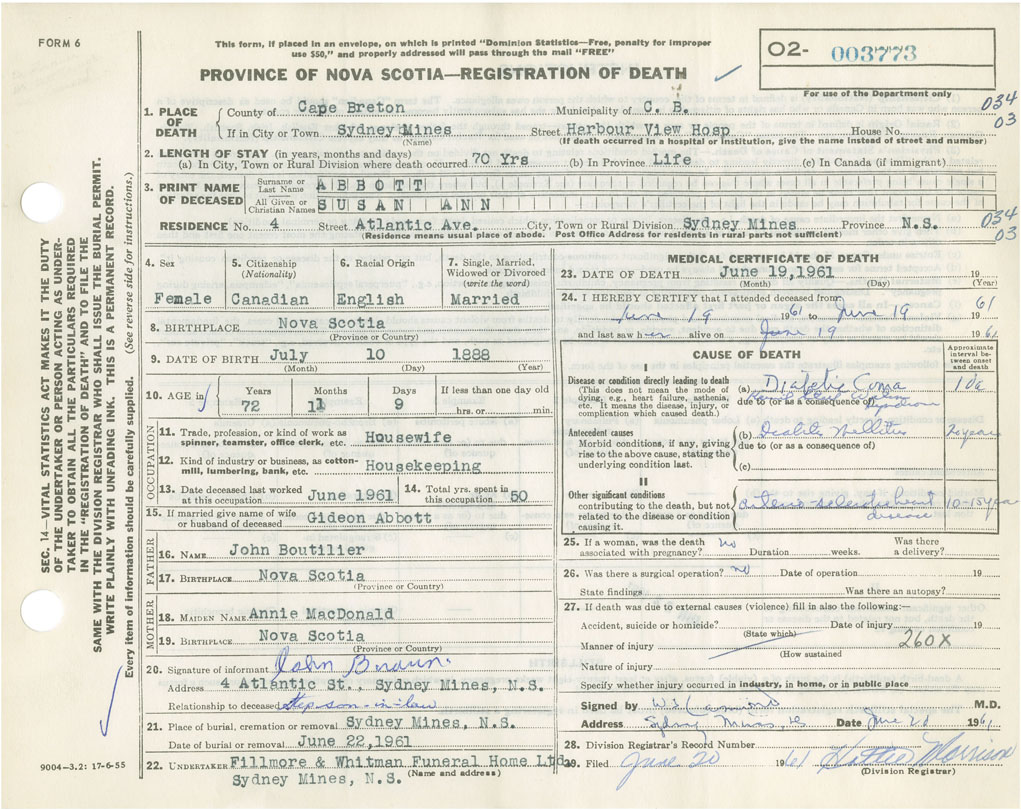 FORM 6
This form, if placed in an envelope, on which is printed "Dominion Statistics—Free, penalty for improper
use $50," and properly addressed will pass through the mail "FREE"
PROVINCE OF NOVA SCOTIA—REGISTRATION OF DEATH
02- 003773
For use of the Department only
034
03
1. PLACE OF DEATH
County of Cape Breton Municipality of C. B.
If in City or Town Sydney Mines Street Harbour View Hosp House No.
(Name) (If death occurred in a hospital or institution, give the name instead of street and number)
2. LENGTH OF STAY (in years, months and days)
(a) In City, Town or Rural Division where death occurred 70 Yrs (b) In Province Life (c) In Canada (if immigrant)
3. PRINT NAME OF DECEASED
Surname or Last Name ABBOTT
All Given or Christian Names SUSAN ANN
RESIDENCE No. 4 Street Atlantic Ave. City, Town or Rural Division Sydney Mines Province N.S.
(Residence means usual place of abode. Post Office Address for residents in rural parts not sufficient)
034
03
4. Sex
Female
5. Citizenship
(Nationality)
Canadian
6. Racial Origin
English
7. Single, Married,
Widowed or Divorced
(write the word)
Married
8. BIRTHPLACE Nova Scotia
(Province or Country)
9. DATE OF BIRTH July 10 1888
(Month) (Day) (Year)
10. AGE in
Years Months Days If less than one day old
72 11 9 hrs. or min.
OCCUPATION
11. Trade, profession, or kind of work as
spinner, teamster, office clerk, etc. Housewife
12. Kind of industry or business, as cotton-
mill, lumbering, bank, etc. Housekeeping
13. Date deceased last worked
at this occupation June 1961
14. Total yrs. spent in
this occupation 50
15. If married give name of wife
or husband of deceased Gideon Abbott
FATHER
16. NAME John Boutilier
17. BIRTHPLACE Nova Scotia
(Province or Country)
MOTHER
18. MAIDEN NAME Annie MacDonald
19. BIRTHPLACE Nova Scotia
(Province or Country)
20. Signature of informant John
Address 4 Atlantic St., Sydney Mines, N.S.
Relationship to deceased Step son-in-law
21. Place of burial, cremation or removal Sydney Mines, N.S.
Date of burial or removal June 22, 1961
22. UNDERTAKER Fillmore & Whitman Funeral Home Ltd.
Sydney Mines, N.S. (Name and address)
MEDICAL CERTIFICATE OF DEATH
23. DATE OF DEATH June 19, 1961 19
(Month) (Day) (Year)
24. I HEREBY CERTIFY that I attended deceased from
June 19 1961 to June 19 1961
and last saw her alive on June 19 1961
CAUSE OF DEATH
Approximate interval between onset and death
I
Disease or condition directly leading to death
(This does not mean the mode of
dying, e.g., heart failure, asthenia,
etc. It means the disease, injury, or
complication which caused death.)
(a) Diabetic Coma
due to (or as a consequence of)
Antecedent causes
Morbid conditions, if any, giving
rise to the above cause, stating the
underlying condition last.
(b) Diabetes Mellitus 20 years
due to (or as a consequence of:)
(c)
II
Other significant conditions
contributing to the death, but not
related to the disease or condition
causing it.
arterio-sclerotic heart
disease
10-15 year
25. If a woman, was the death
associated with pregnancy? no Duration weeks. Was there
a delivery?
26. Was there a surgical operation? no Date of operation 19
State findings Was there an autopsy?
27. If death was due to external causes (violence) fill in also the following:—
Accident, suicide or homicide? Date of injury 19
(State which)
Manner of injury 260X
(How sustained
Nature of injury
Specify whether injury occurred in industry, in home, or in public place
Signed by M.D.
Address Sydney Mines, NS Date June 20 1961
28. Division Registrar's Record Number
29. Filed June 20 1961 Hattie Morrison
(Division Registrar)
SEC. 14—VITAL STATISTICS ACT MAKES IT THE DUTY
OF THE UNDERTAKER OR PERSON ACTING AS UNDER-
TAKER TO OBTAIN ALL THE PARTICULARS REQUIRED
IN THE "REGISTRATION OF DEATH" AND TO FILE THE
SAME WITH THE DIVISION REGISTRAR WHO SHALL ISSUE THE BURIAL PERMIT.
WRITE PLAINLY WITH UNFADING INK. THIS IS A PERMANENT RECORD.
Every item of information should be carefully supplied. (See reverse side for instructions.)
9004-3.2: 17-6-55